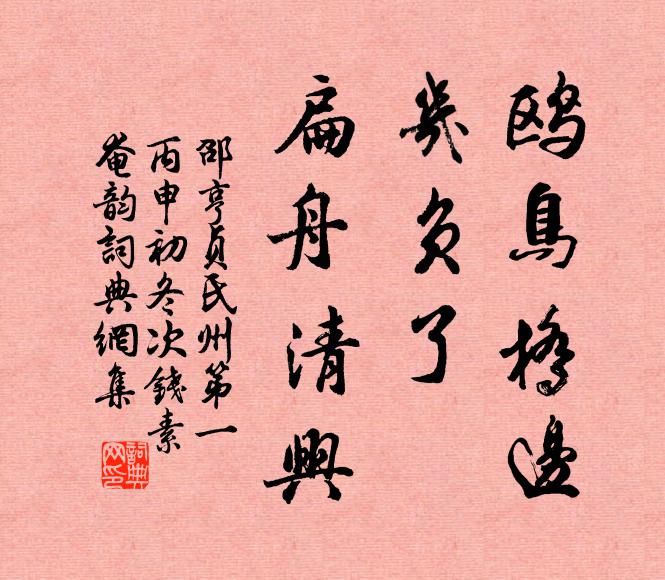 鸥鳥橋邊
幾负了
扁舟清興
邵亨貞氐州第一
丙申初冬次錢素
菴韵詞典網集
詞典网印